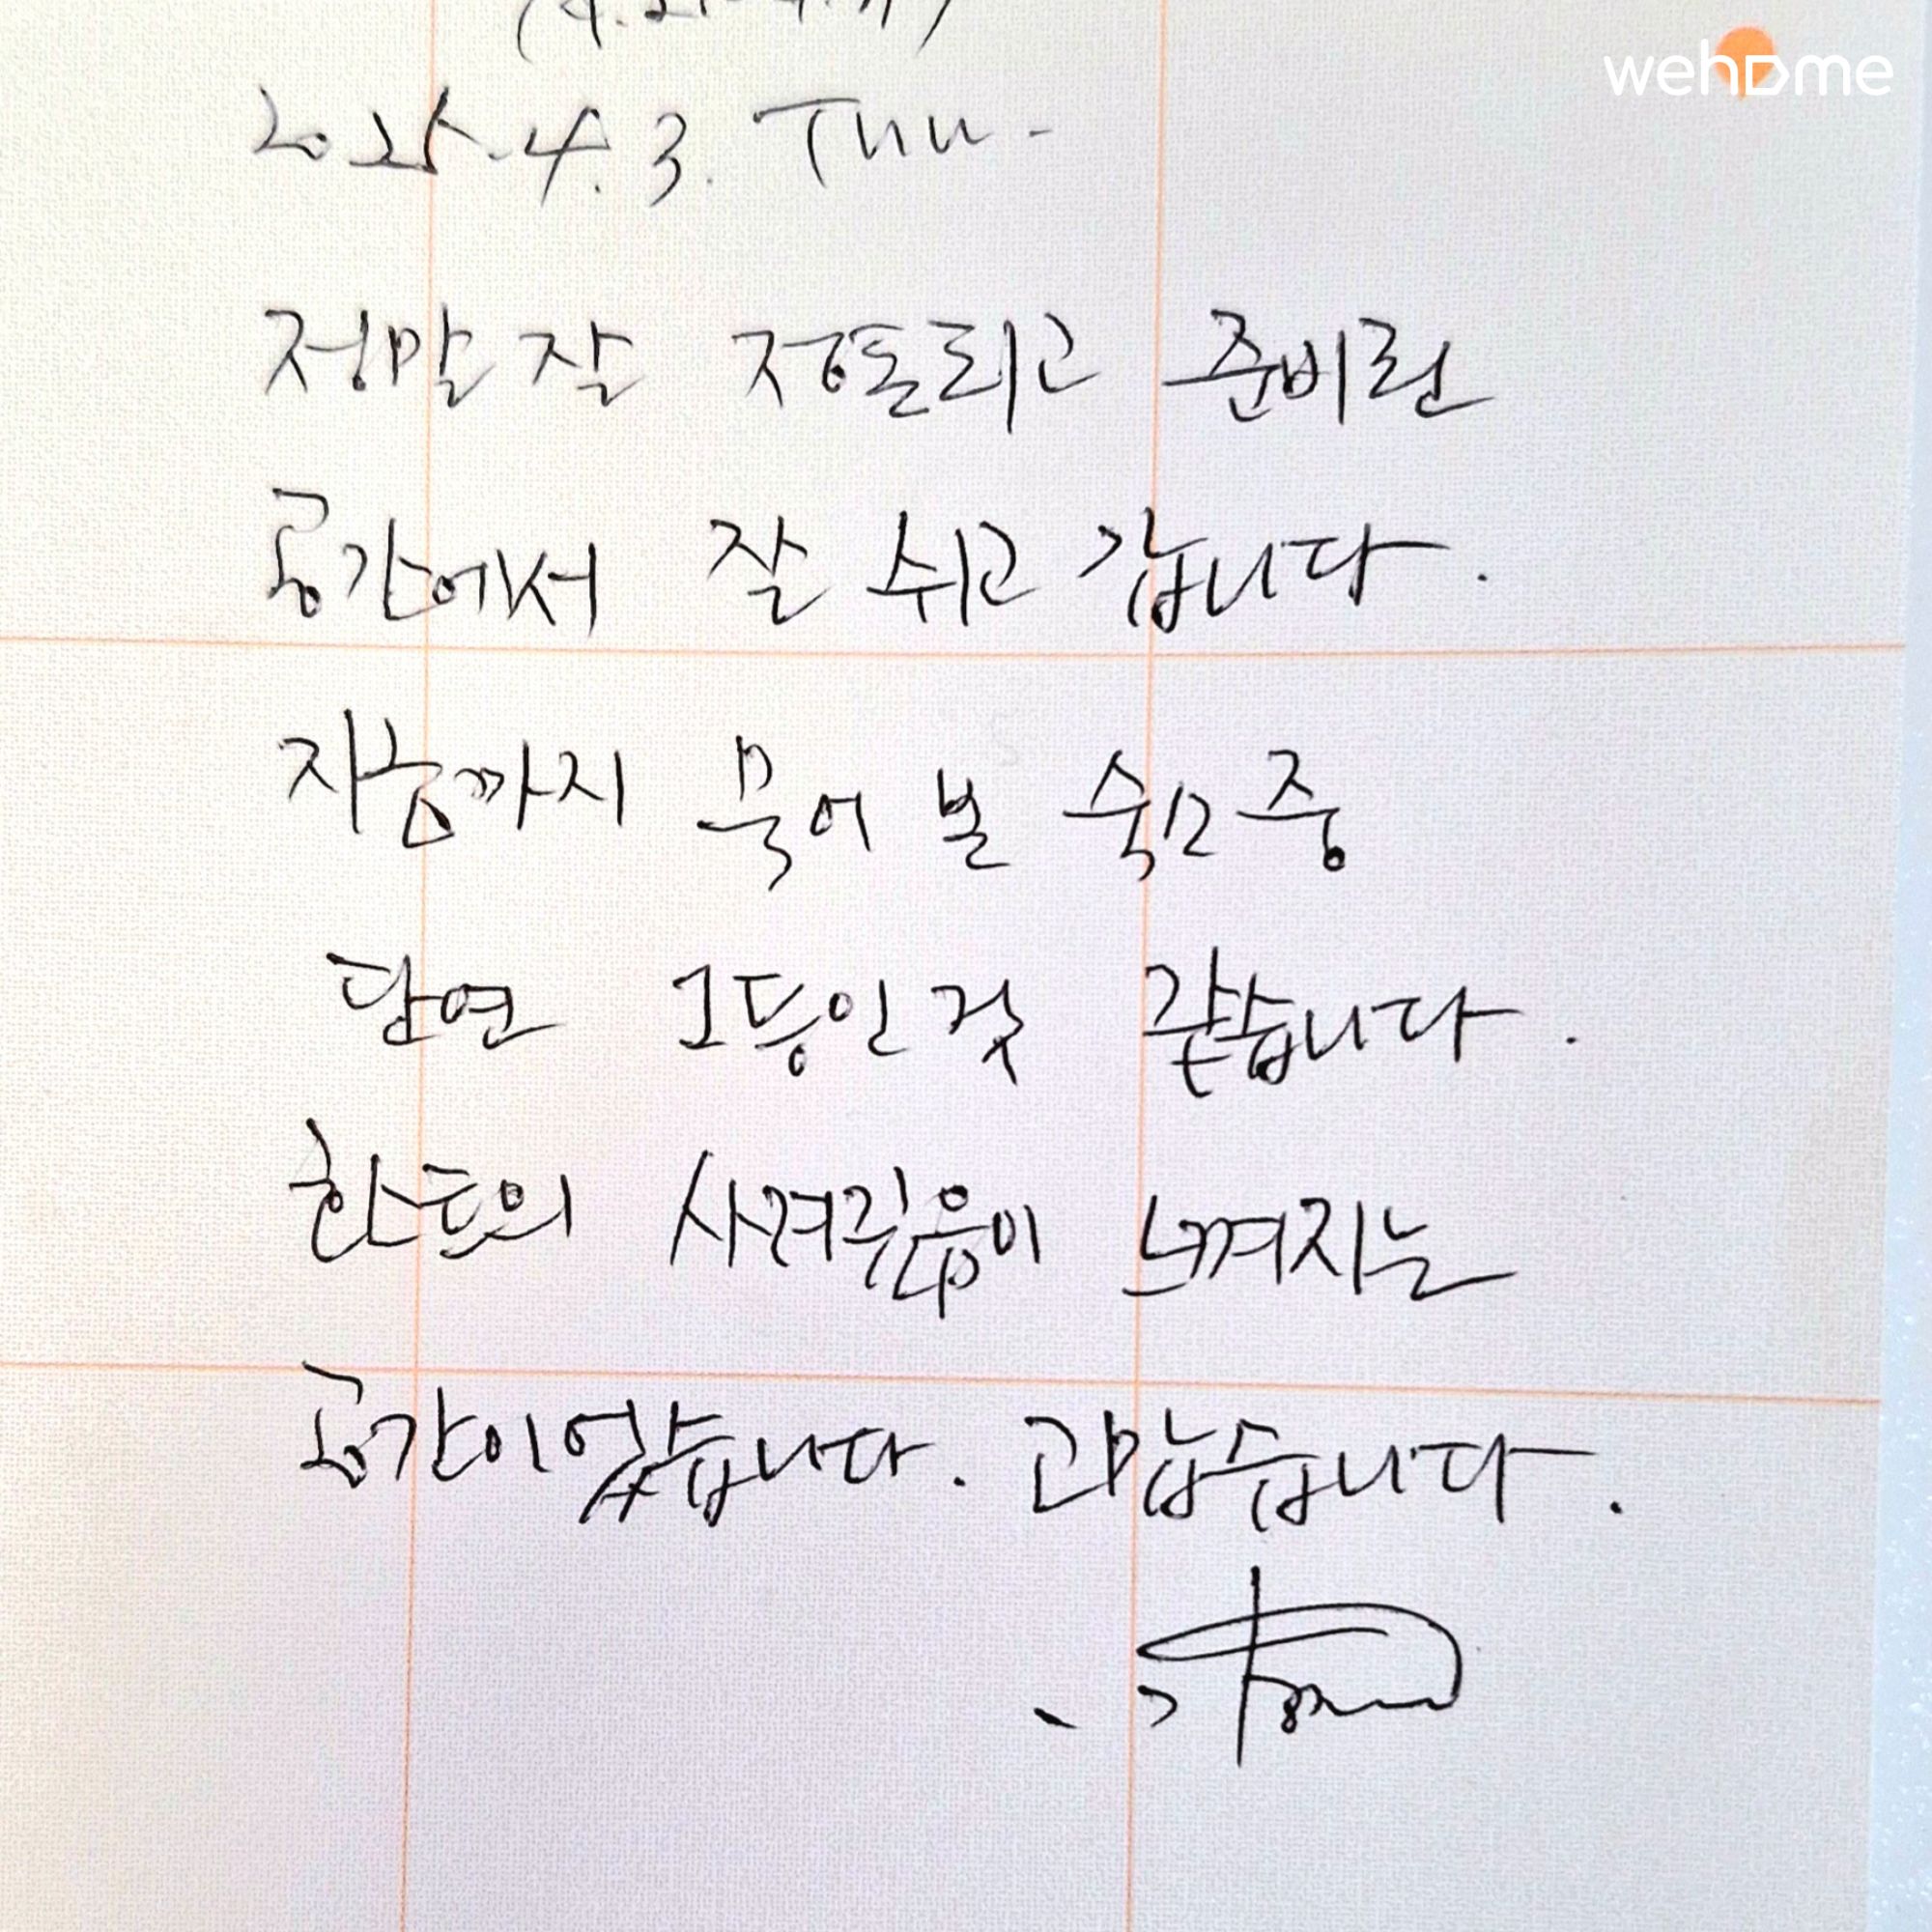 wehome
2025.4.3. Thu.
정말 잘 정돈되고 준비된
공간에서 잘 쉬고 갑니다.
지금까지 묵어 본 숙소 중
단연 1등인 것 같습니다.
한 분의 사려깊음이 느껴지는
공간이었습니다. 고맙습니다.